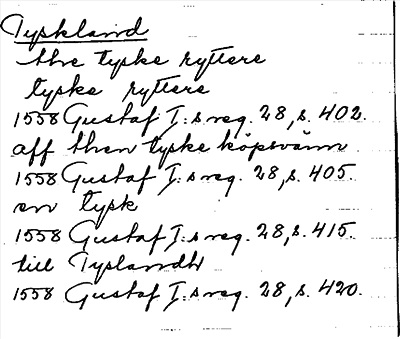 Tyskland
the tyske ryttere
tyske ryttere
1558 Gustaf I:s reg. 28, s. 402.
aff then tyske köpsvänn
1558 Gustaf I:s reg. 28, s. 405.
en tysk
1558 Gustaf I:s reg. 28, s. 415.
till Tyslandh
1558 Gustaf I:s reg. 28, s. 420.